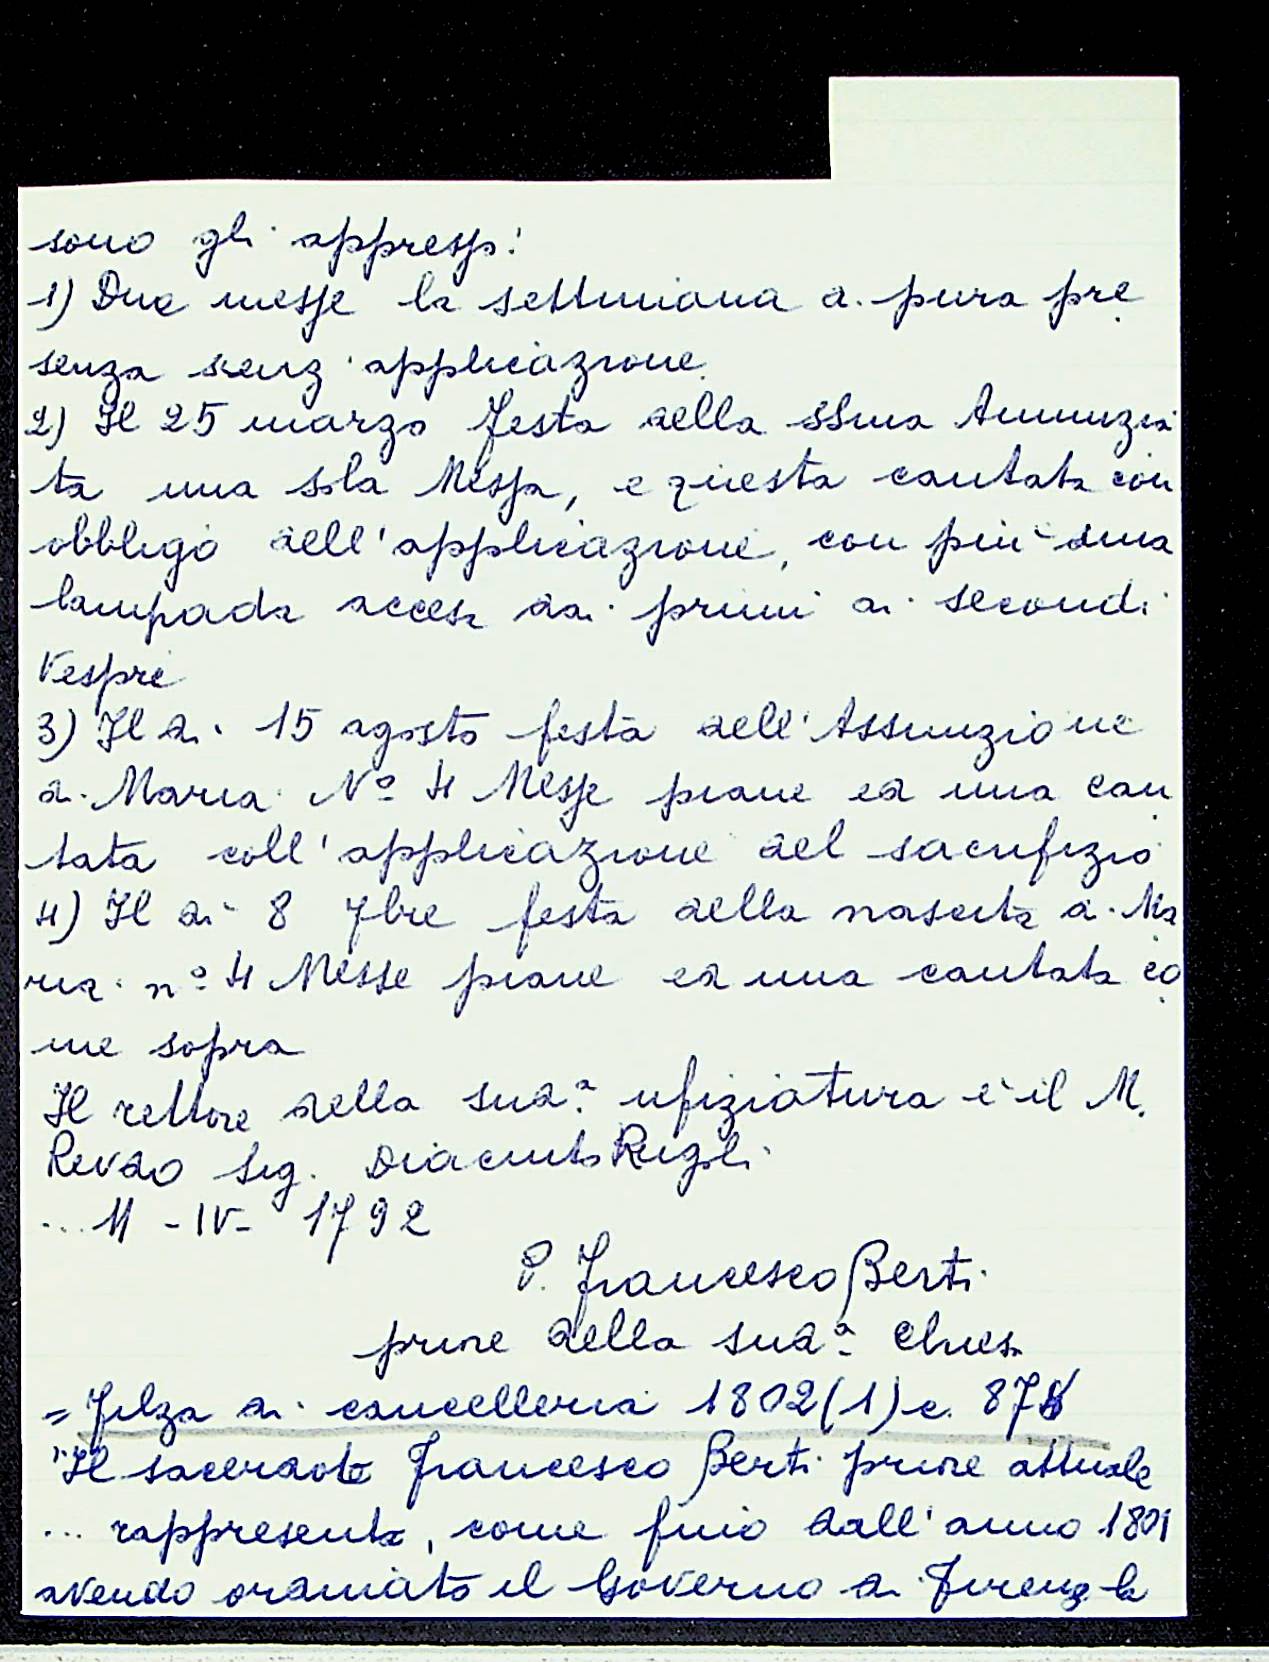 sono gli appressi:
1) Due messe la settimana di pura pre
senza senz'applicazione.
2) Il 25 marzo festa della SSma Annunzia
ta una sola Messa, e questa cantata con
obbligo dell'applicazione, con più una
lampada accesa dai primi ai secondi
Vespri
3) Il dì 15 agosto festa dell'Assunzione
di Maria Nº 4 Messe piane ed una can
tata coll'applicazione del sacrifizio
4) Il dì 8 7bre festa della nascita di Ma
ria nº 4 Messe piane ed una cantata co
me sopra
Il rettore della sudª ufiziatura è il M.
Revdo Sig. Diacinto Rigoli
... 11 - IV - 1792
P. Francesco Berti
priore della sudª chiesa
= Filza di cancelleria 1802 (1) c. 87
"Il sacerdote Francesco Berti priore attuale
... rappresenta, come fino dall'anno 1801
avendo ordinato il Governo di Firenze la